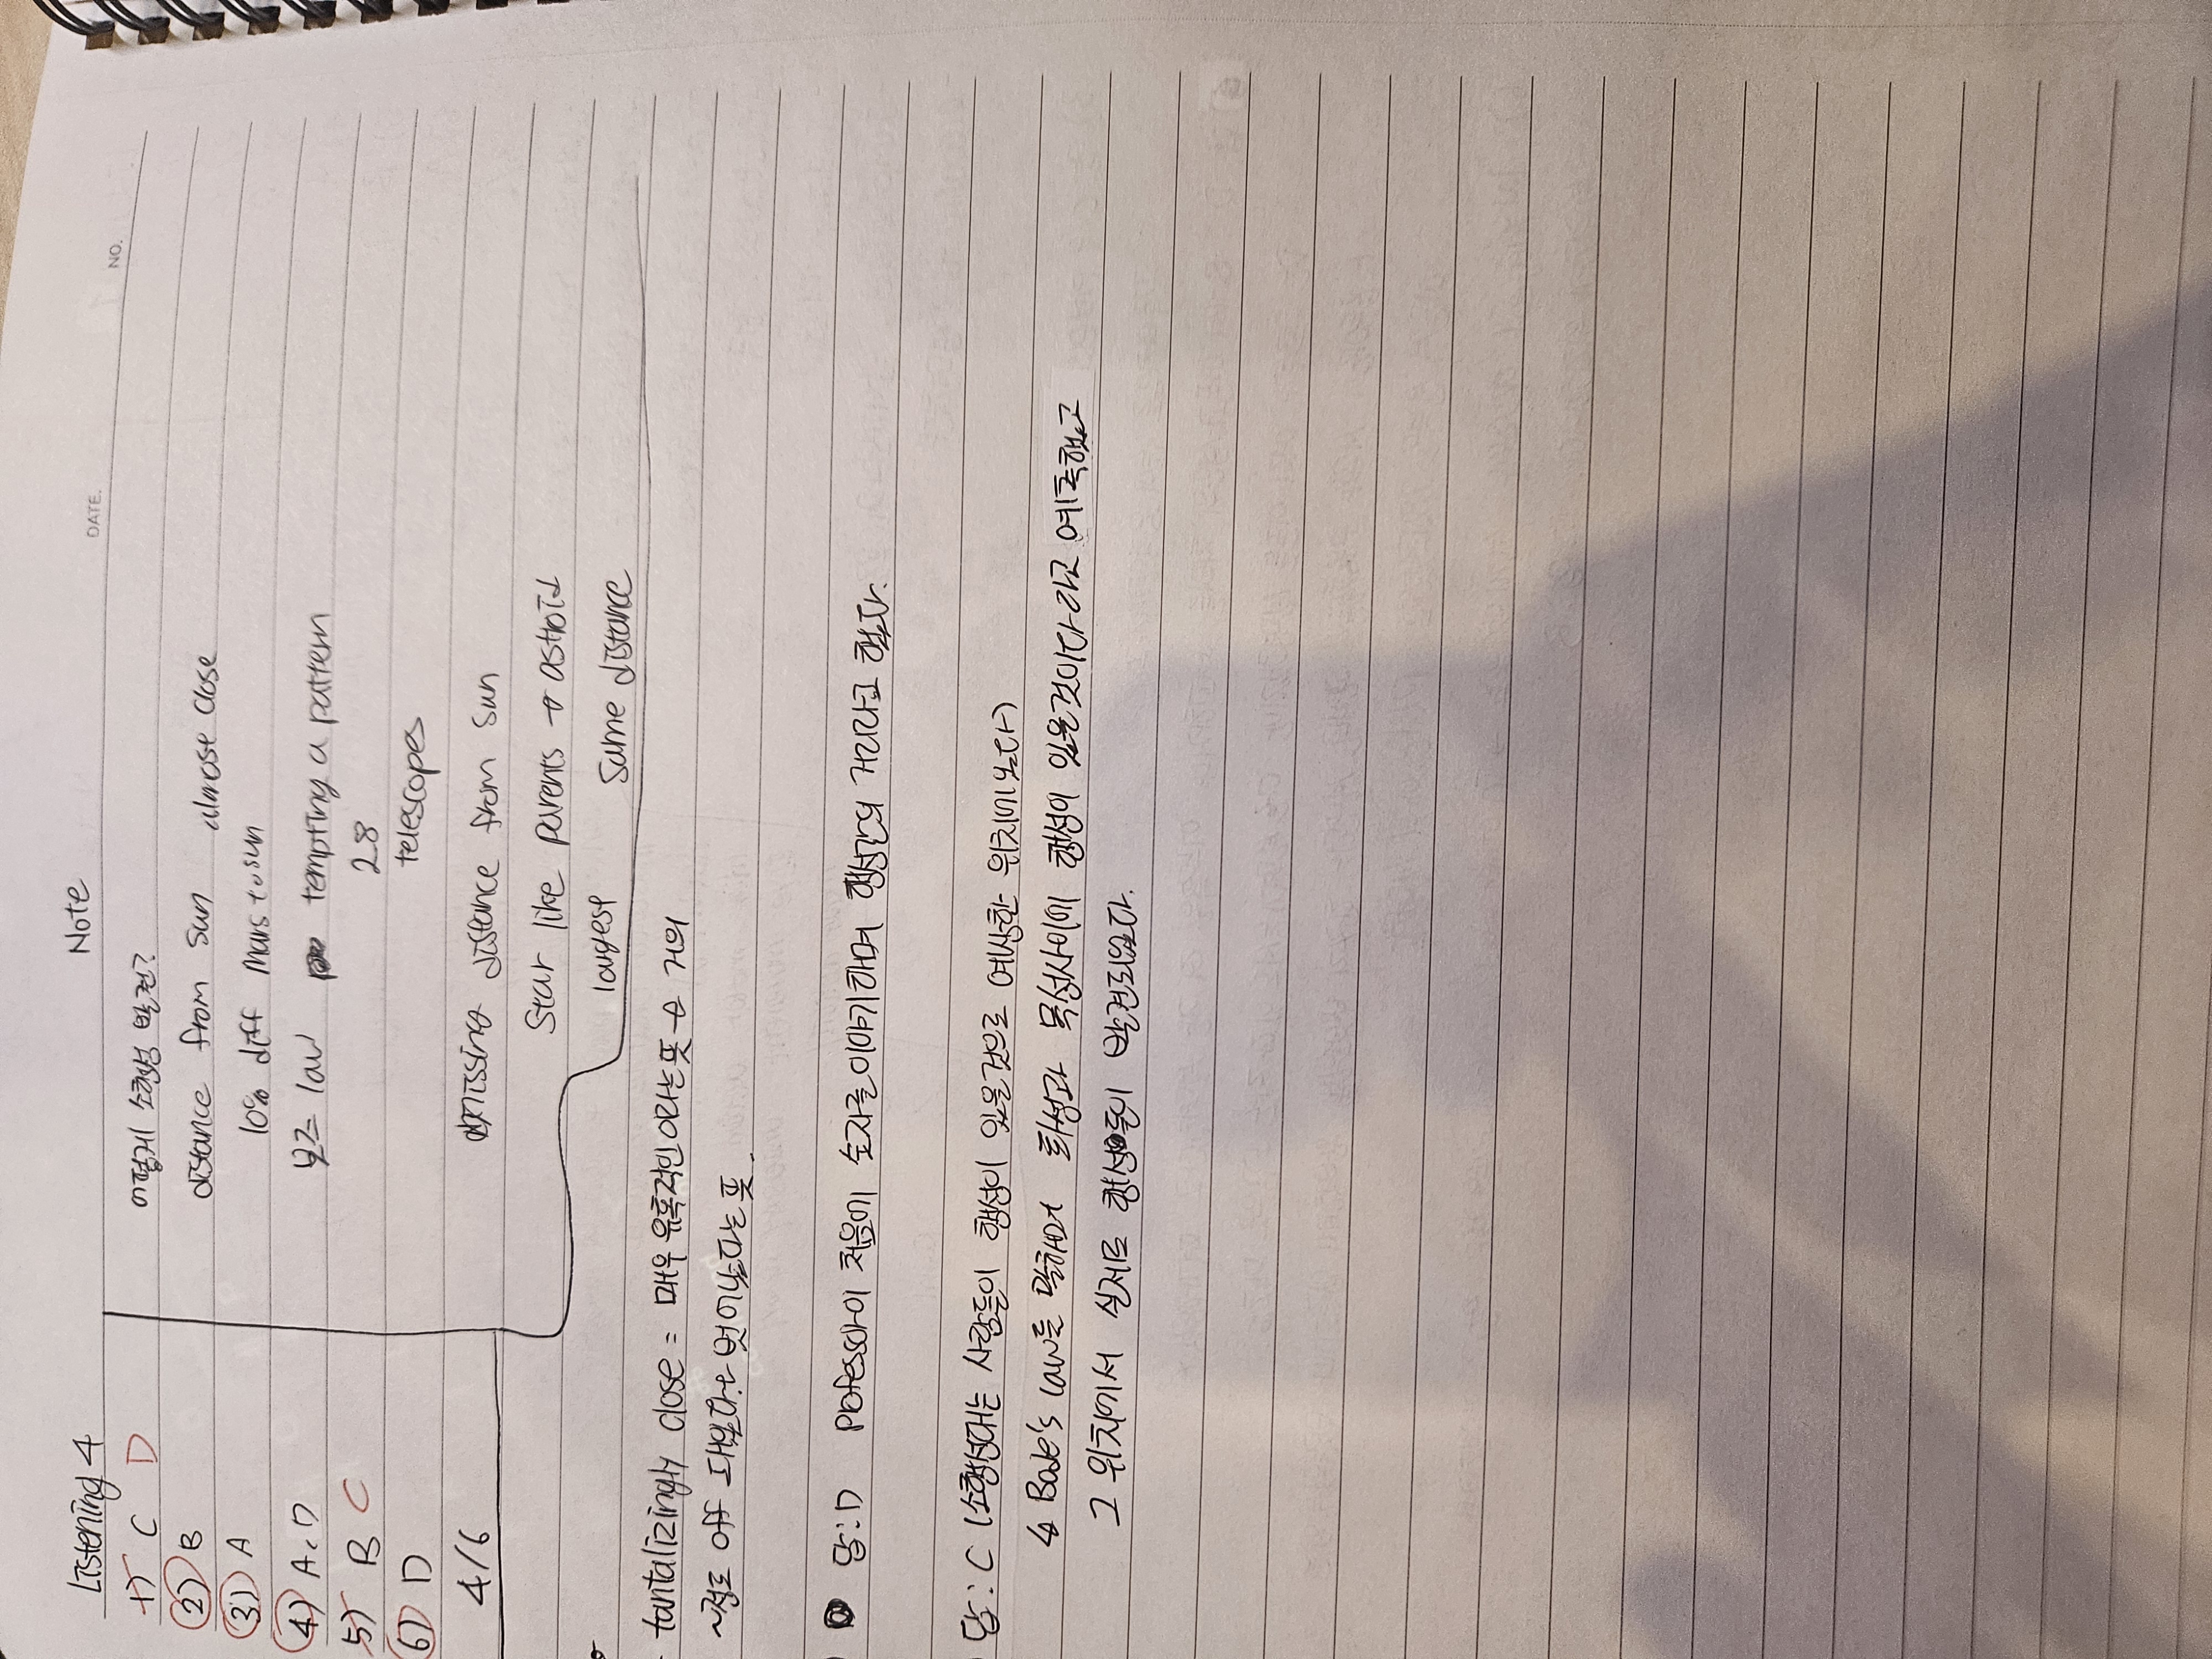 Listening 4
Note
DATE.
NO.
1) C D
2) B
3) A
4) A, D
5) B C
6) D
4/6
어떻게 소행성 발견?
distance from sun almost close
10% diff Mars to sun
보즈 law tempting a pattern
28
telescopes
missing distance from sun
Star like parents → astroid
longest same distance
tantalizingly close = 매우 유혹적인이라는 뜻 → 거의
~정도 off 됐다나 벗어났다는 뜻.
답: D professor이 처음에 숫자를 이야기하며 행성간의 거리라고 했다.
답: C (소행성대는 사람들이 행성이 있을것으로 예상한 위치에 있다)
↳ Bode's law를 말하면서 화성과 목성사이에 행성이 있을것이다 라고 예측했고
그 위치에서 실제로 행성들이 발견되었다.